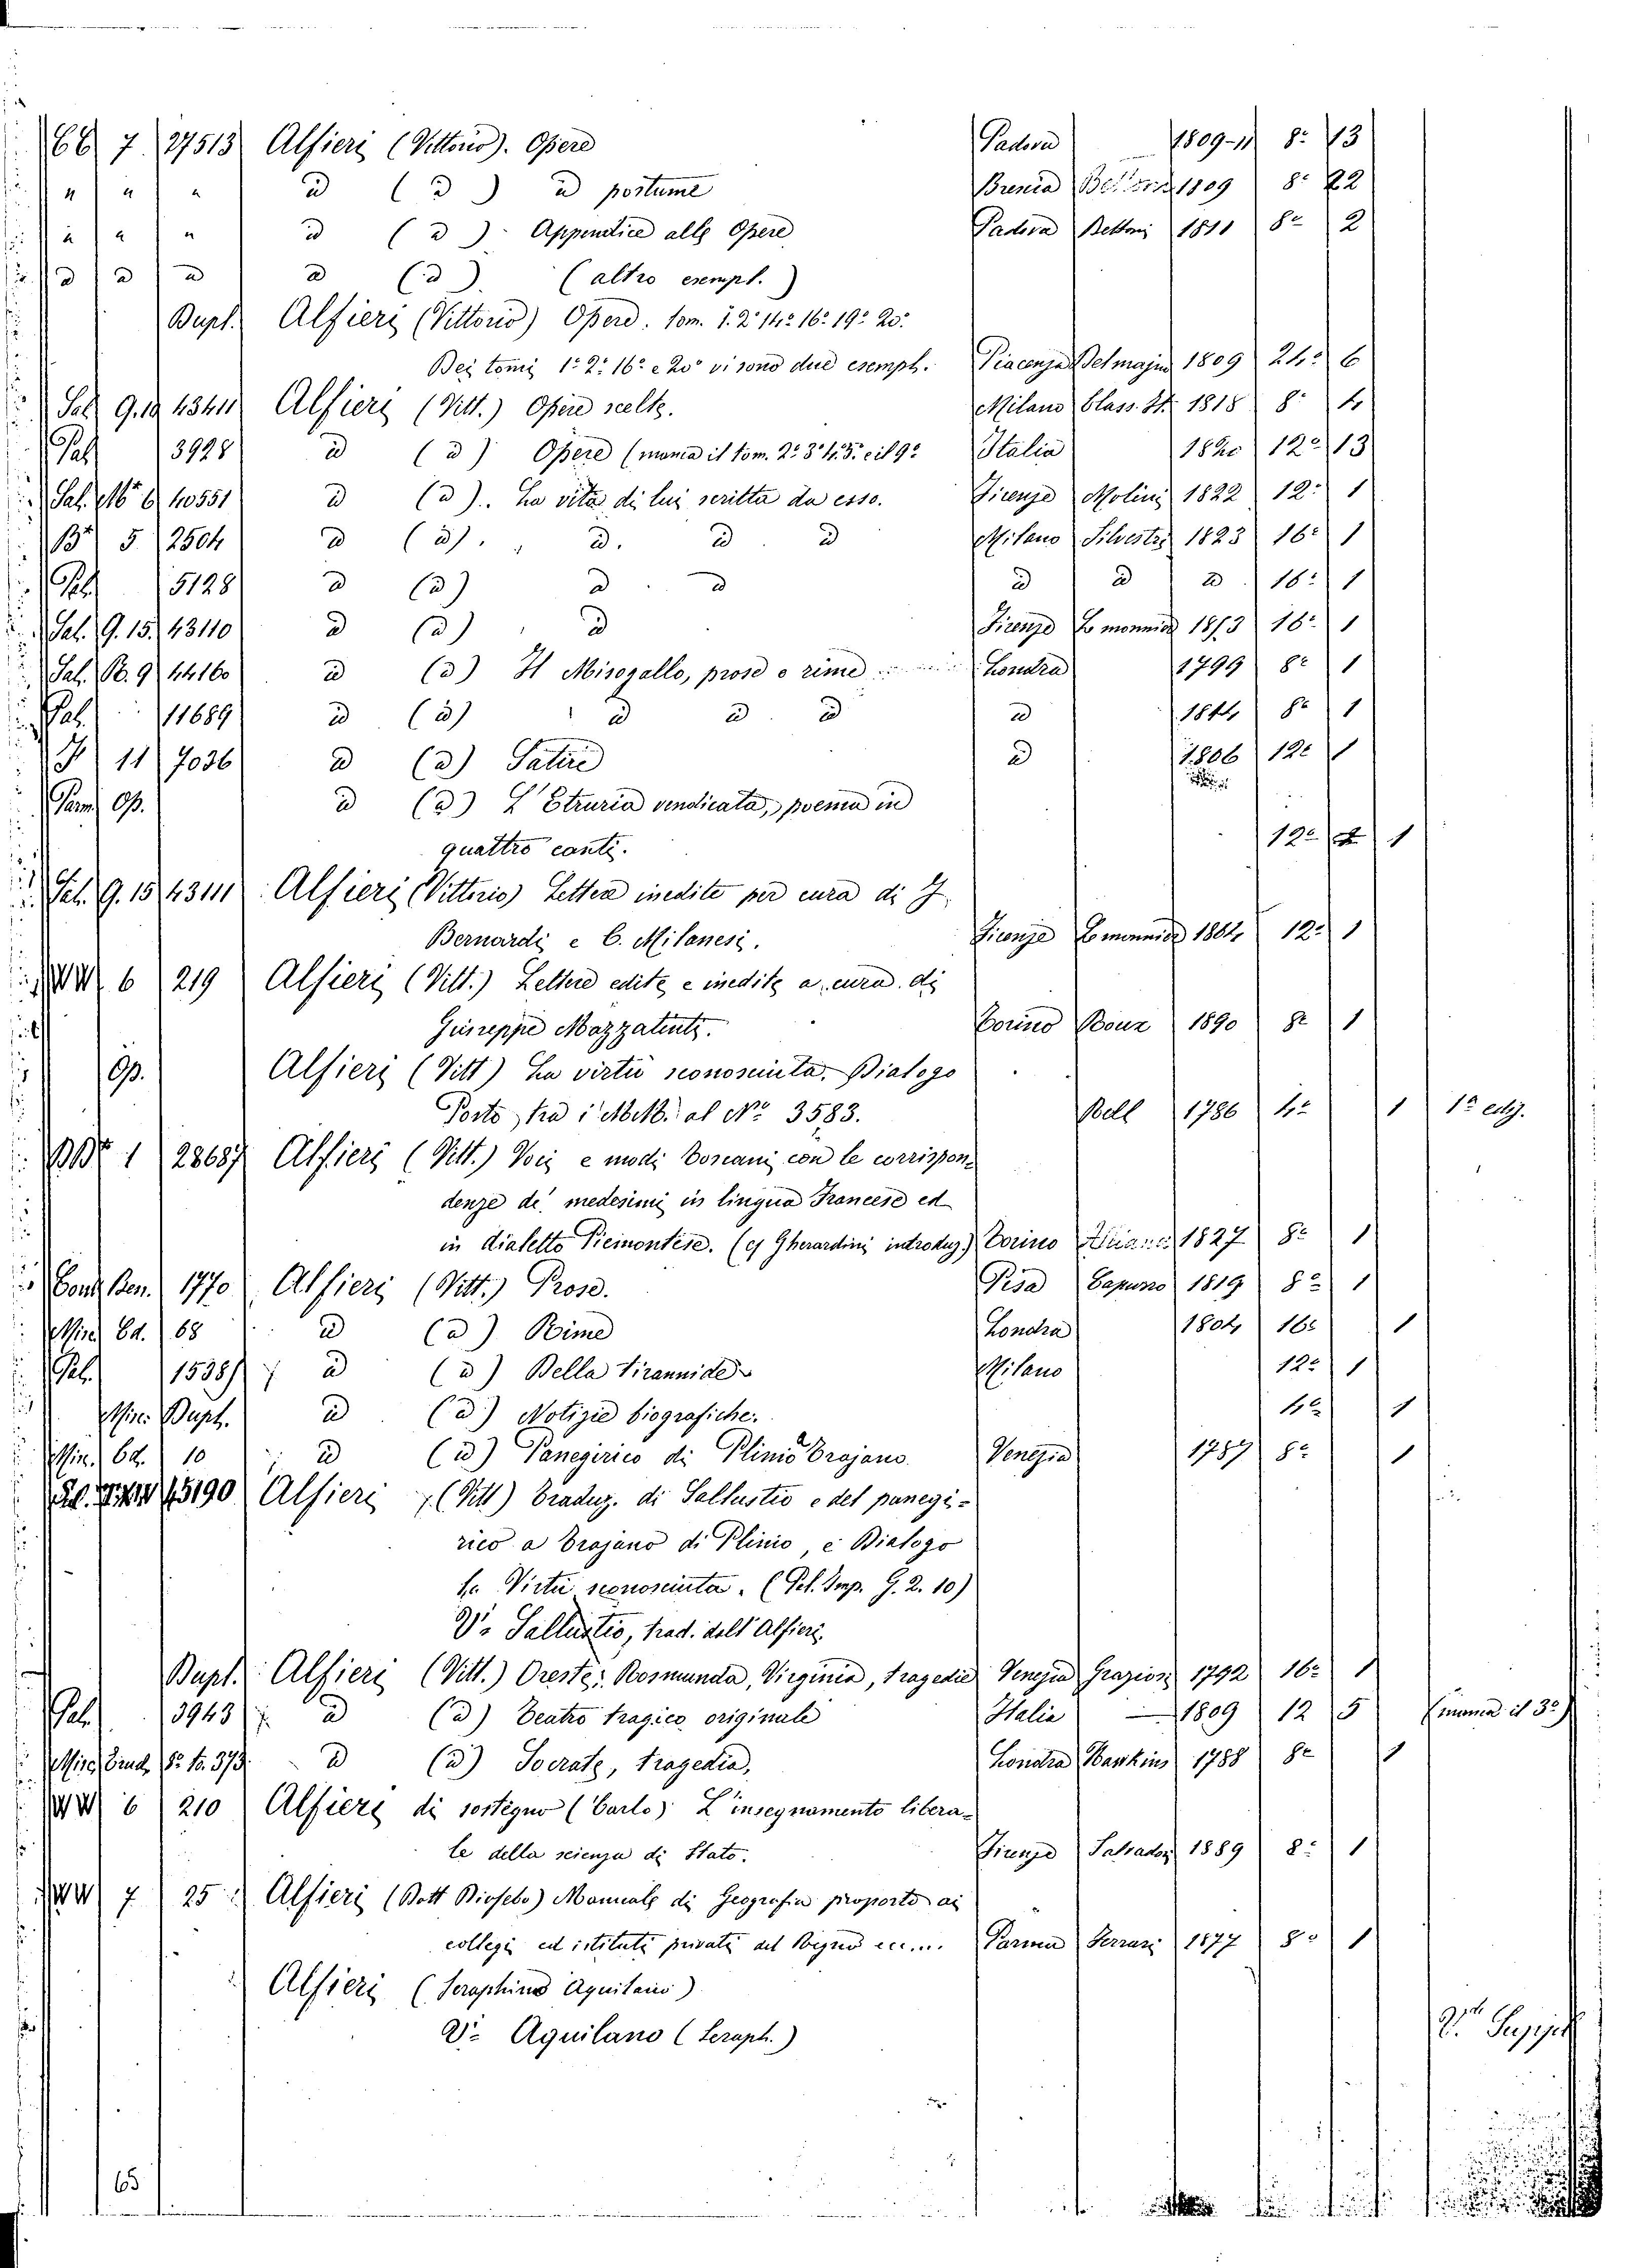 66 7 27513 Alfieri (Vittorio). Opere Padova 1809-11 8º 13
" " " id (id) id postume Brescia Bettoni 1809 8º 2
" " " id (id). Appendice alle Opere Padova Bettoni 1811 8º 2
id id id id (id) (altro esempl.)
Dupl. Alfieri (Vittorio) Opere. tom. 1. 2º 14º 16º 19º 20º
Dei tomi 1º 2º 16º e 20º vi sono due esempl. Piacenza Delmajno 1809 24º 6
Sal. G.19 43411 Alfieri (Vitt.) Opere scelte. Milano Class. It. 1818 8º 4
Pal. 3928 id (id) Opere (manca il tom. 2º 3º 4º 5º e il 9º Italia 1820 12º 13
Sal. 6 40551 id (id). La vita di lui scritta da esso. Firenze Molini 1822 12º 1
5 12504 id (id). id. id id Milano Silvestri 1823 16º 1
Pal. 5128 id (id) id id id id id 16º 1
Sal. G.15. 43110 id (id) id Firenze Le monnier 1853 16º 1
Sal. 9 44160 id (id) Il Misogallo, prose e rime Londra 1799 8º 1
Pal. 11689 id (id) id id id id 1844 8º 1
11 7036 id (id) Satire id 1806 12º 1
Op. id (id) L'Etruria vendicata, poema in
quattro canti. 12º 1
Sal. G.15 43111 Alfieri (Vittorio) Lettere inedite per cura di J.
Bernardi e C. Milanesi. Firenze Le monnier 1864 12º 1
WW 6 219 Alfieri (Vitt.) Lettere edite e inedite a cura di
Giuseppe Mazzatinti. Torino Roux 1890 8º 1
Op. Alfieri (Vitt) La virtù sconosciuta. Dialogo
Posto tra i MSS. al Nº 3583. Kell 1786 4º 1 1ª ediz.
1 28687 Alfieri (Vitt.) Voci e modi Toscani con le corrispon-
denze de' medesimi in lingua Francese ed
in dialetto Piemontese. (ej Gherardini introduz.) Torino 1827 8º 1
Ben. 1770 Alfieri (Vitt.) Prose. Pisa Capurro 1819 8º 1
Misc. Cd. 68 id (id) Rime Londra 1804 16º 1
Pal. 15385 id (id) Della Tirannide Milano 12º 1
Misc. Dupl. id (id) Notizie biografiche. 4º 1
Misc. Cd. 10 id (id) Panegirico di Plinio a Trajano. Venezia 1787 8º 1
45190 Alfieri (Vitt) Traduz. di Sallustio e del panegi-
rico a Trajano di Plinio, e Dialogo
la Virtù sconosciuta. (Pal. Imp. G. 2. 10)
Vº Sallustio, trad. dell'Alfieri.
Dupl. Alfieri (Vitt.) Oreste, Rosmunda, Virginia, tragedie Venezia Graziosi 1792 16º 1
Pal. 3943 id (id) Teatro tragico originale Italia 1809 12 5 (manca il 3º)
Misc. Erud. 8º to. 373. id (id) Socrate, tragedia, Londra Hawkins 1788 8º 1
WW 6 210 Alfieri di sostegno (Carlo) L'insegnamento libera-
le della scienza di Stato. Firenze Salvador 1889 8º 1
WW 7 25 Alfieri (Dott Diofebo) Manuale di Geografia proposto ai
collegi ed istituti privati del Regno ec.... Parma Ferrari 1877 8º 1
Alfieri (Seraphino Aquilano)
Vº Aquilano (Seraph.)
65